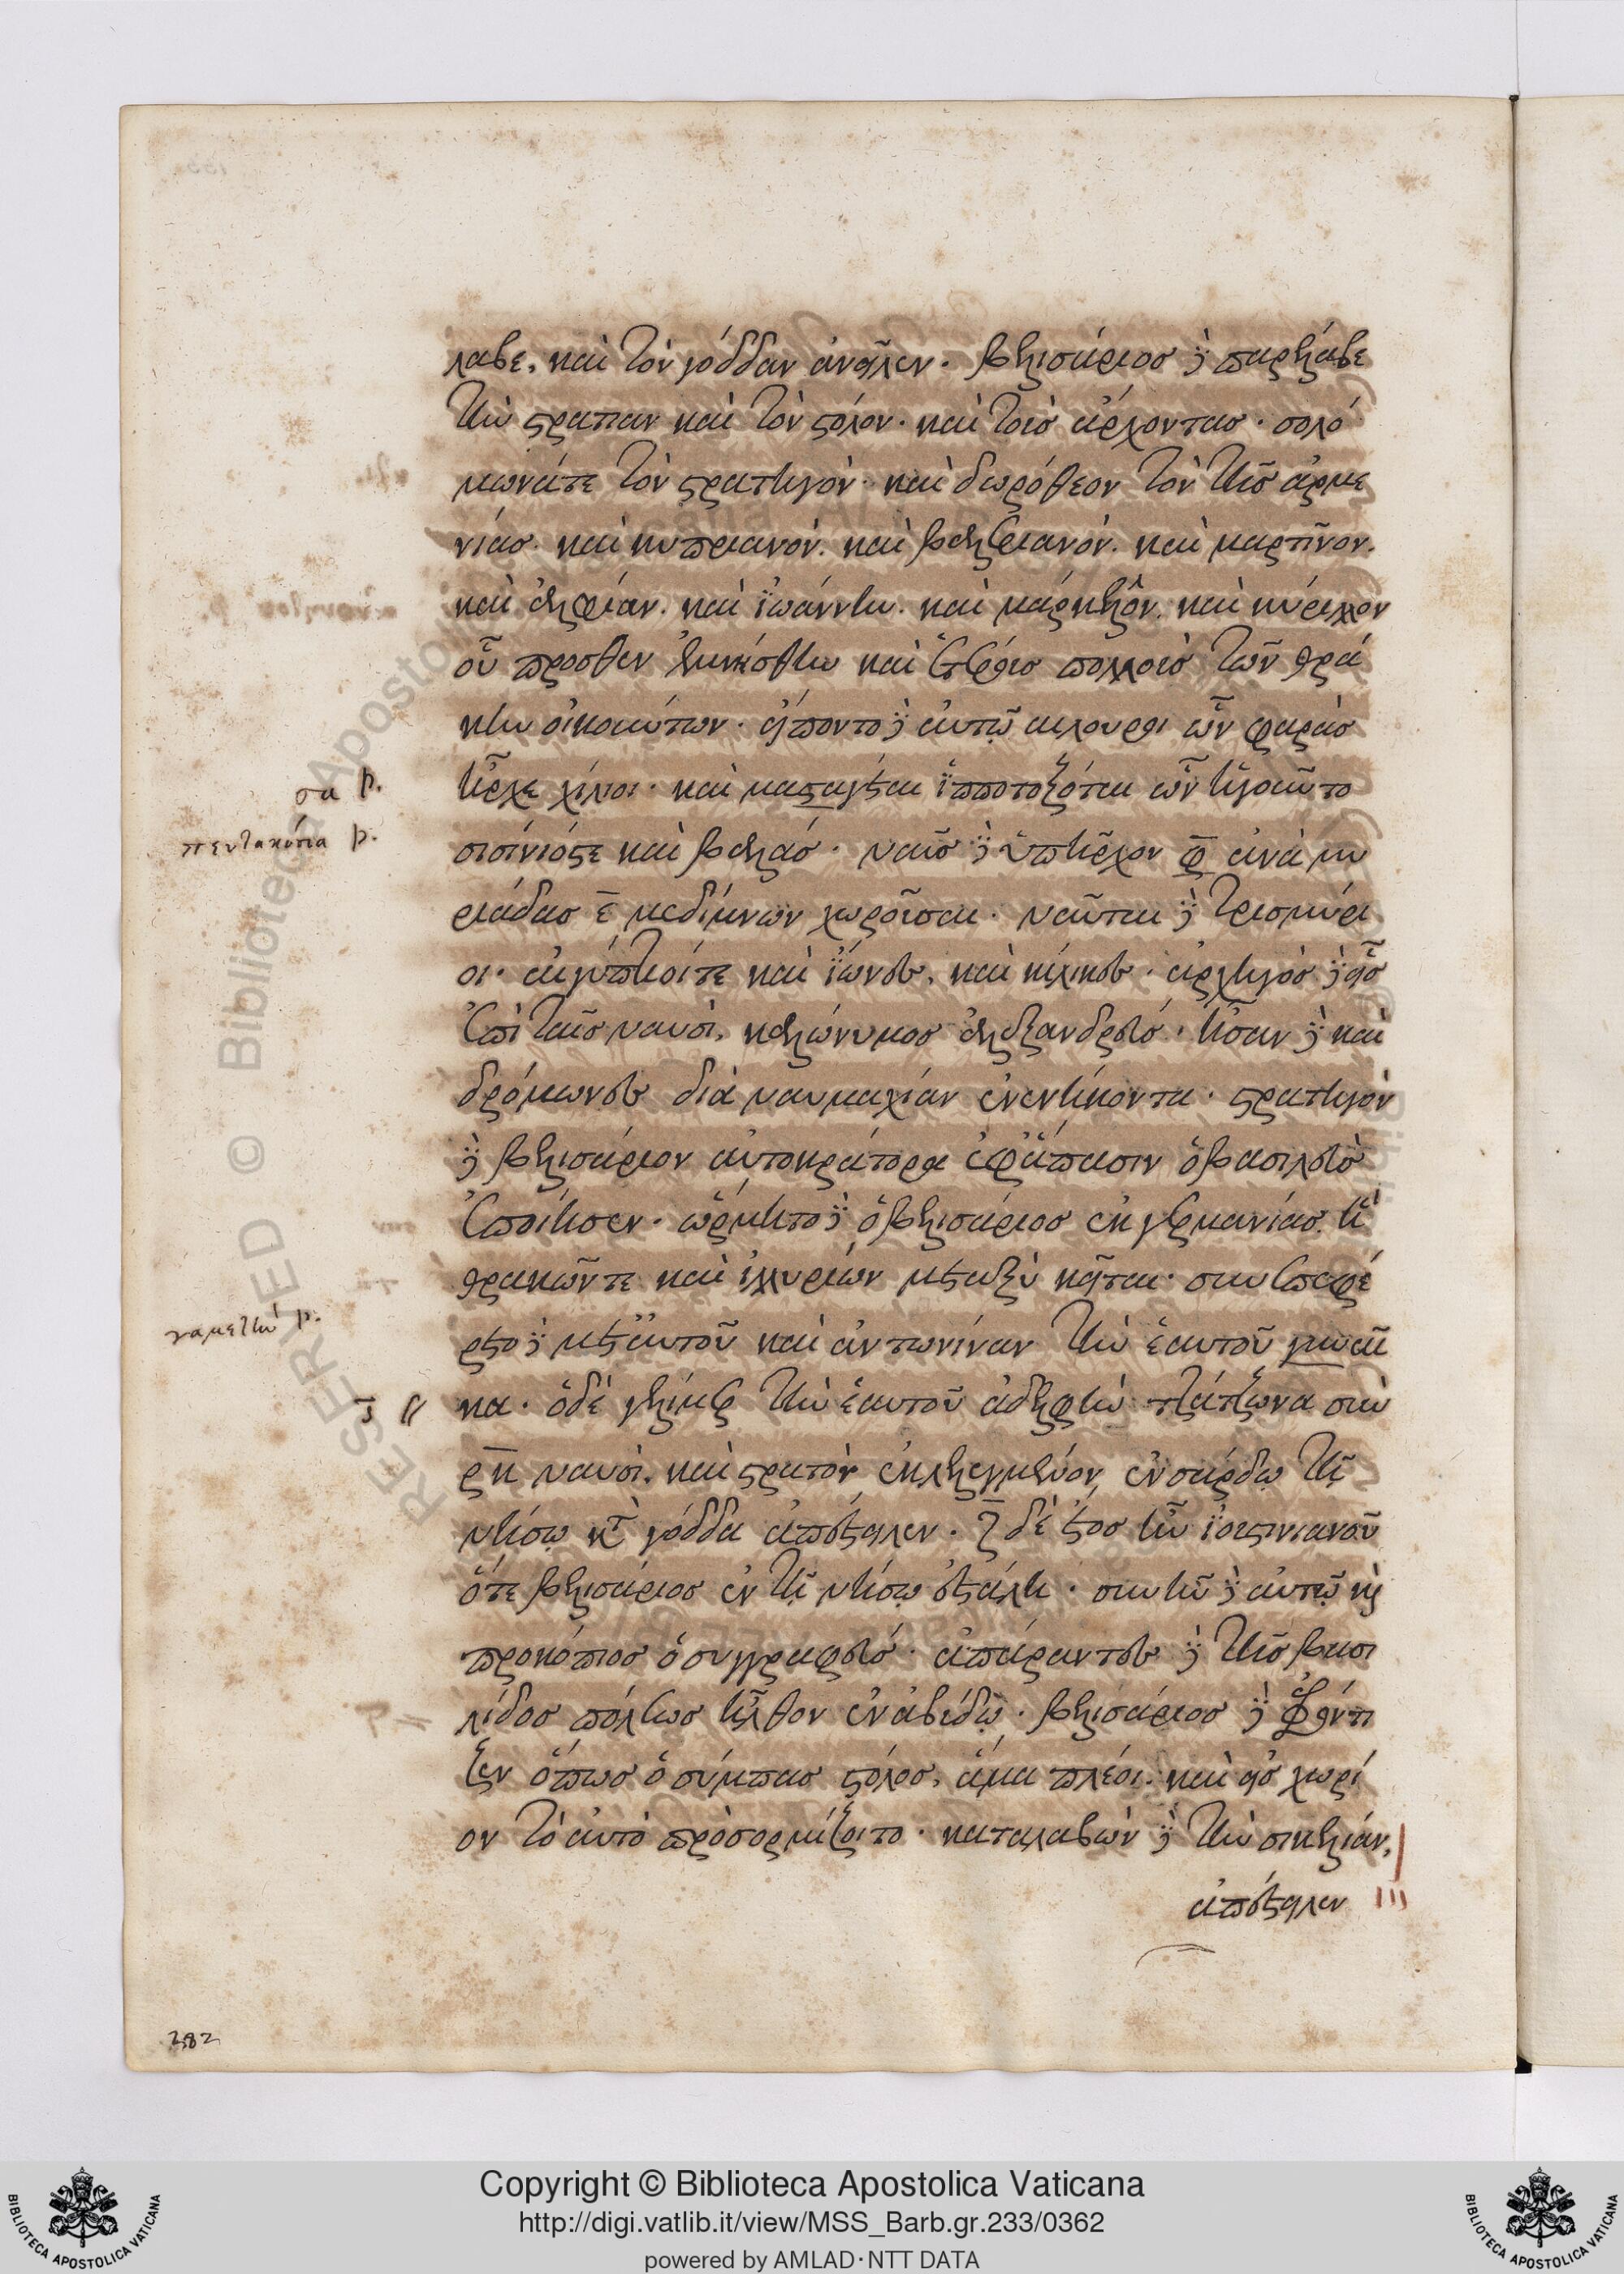 λαβε, καὶ τὸν γόδδαν ἀνεῖλεν. βελισάριος δὲ παρέλαβε
τὴν στρατιαν καὶ τὸν στόλον. καὶ τοὺς ἄρχοντας. σολό
μωνάτε τὸν στρατηγόν. καὶ δωρόθεον τὸν τῆς ἀρμε
νίας. καὶ κυπριανόν. καὶ βαλεριανόν. καὶ μαρτῖνον.
καὶ ἀλφίαν. καὶ ϊωάννην. καὶ μάρκελον. καὶ κύριλλον
οὗ προσθεν ἐμνήσθην καὶ ἑτέρους πολλοὺς τῶν θρά
κην οἰκούντων. εἵποντο δὲ αὐτῷ αιλουροι ὧν φαρὰς
ἦρχε χίλιοι. καὶ μασαγέται ϊπποτοξόται ὧν ἡγοῦντο
σισίνιόςτε καὶ βαλάς. ναῦς δὲ ὑπῆρχον φ ἀνὰ μυ
ριάδας ε μεδίμνων χωροῦσαι. ναῦται δὲ τρισμύρι
οι. αἰγύπτιοίτε καὶ ϊώνες, καὶ κίλικες. ἀρχηγὸς δὲ εἷς
ἐπὶ ταῖς ναυσὶ, καλώνυμος ἀλεξανδρεύς. ἦσαν δὲ καὶ
δρόμωνες διὰ ναυμαχίαν ἐνενήκοντα. στρατηγὸν
δὲ βελισάριον αὐτοκράτορα ἐφἅπασιν ὁ βασιλεὺς
ἐποίησεν. ὥρμητο δὲ ὁ βελισάριος ἐκ γερμανίας. ἣ
θρακῶντε καὶ ἰλλυριῶν μεταξὺ κεῖται. συνεπεφέ
ρετο δὲ μεθἑαυτοῦ καὶ ἀντωνίναν τὴν ἑαυτοῦ γυναῖ
κα. ὁδὲ γελίμερ τὴν ἑαυτοῦ ἀδελφὴν τζάτζωνα σὺν
ρκ ναυσὶ. καὶ στρατὸν ἐκλελεγμένον ἐν σάρδῳ τῇ
νήσῳ κτ γόδδα ἀπέστειλεν. ζ δὲ ἔτος ἦν ϊουστινιανοῦ
ὅτε βελισάριος ἐν τῇ νήσῳ ἐστάλη. συνῆν δὲ αὐτῷ κὶ
προκόπιος ὁ συγγραφεύς. ἀπάραντες δὲ τῆς βασι
λίδος πόλεως ἦλθον ἐν ἀβύδῳ. βελισάριος δὲ ἐφρόντι
ζεν ὅπως ὁ σύμπας στόλος, ἅμα πλέοι. καὶ εἰς χωρί
ον τὸ αὐτὸ προσορμίζοιτο. καταλαβὼν δὲ τὴν σικελίαν,
ἀπέστειλεν
σα p.
πεντακόσια p.
γαμετὴν p.
282
Copyright © Biblioteca Apostolica Vaticana
http://digi.vatlib.it/view/MSS_Barb.gr.233/0362
powered by AMLAD·NTT DATA
BIBLIOTECA APOSTOLICA VATICANA
BIBLIOTECA APOSTOLICA VATICANA